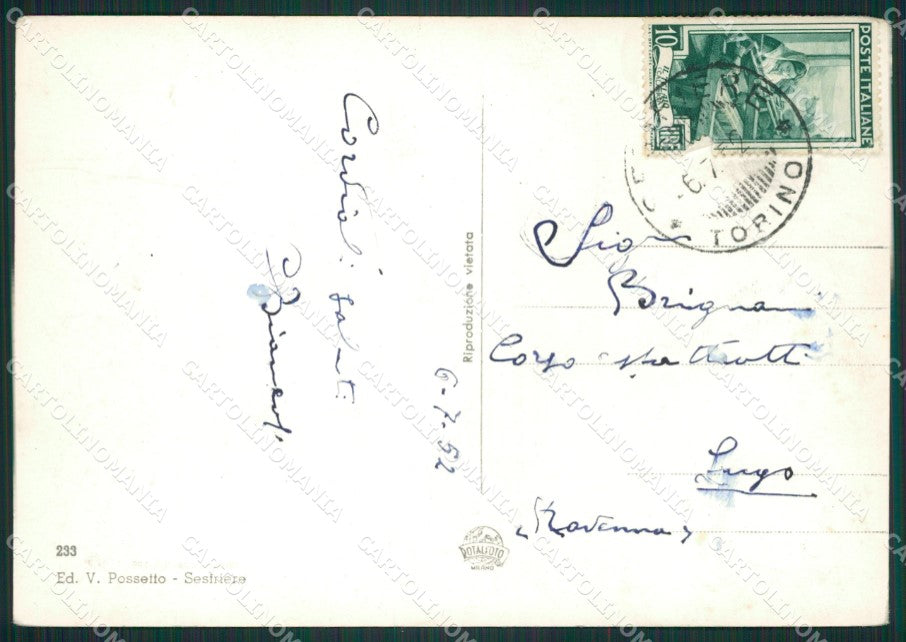 Cordiali saluti
6-7-52
Reproduzione vietata
233
Ed. V. Possetto - Sestriere
ROTALFOTO
MILANO
10
LIRE
POSTE ITALIANE
6.7
TORINO
Brignani
Corso Matteotti
Lugo
(Ravenna)
CARTOLINOMANIA